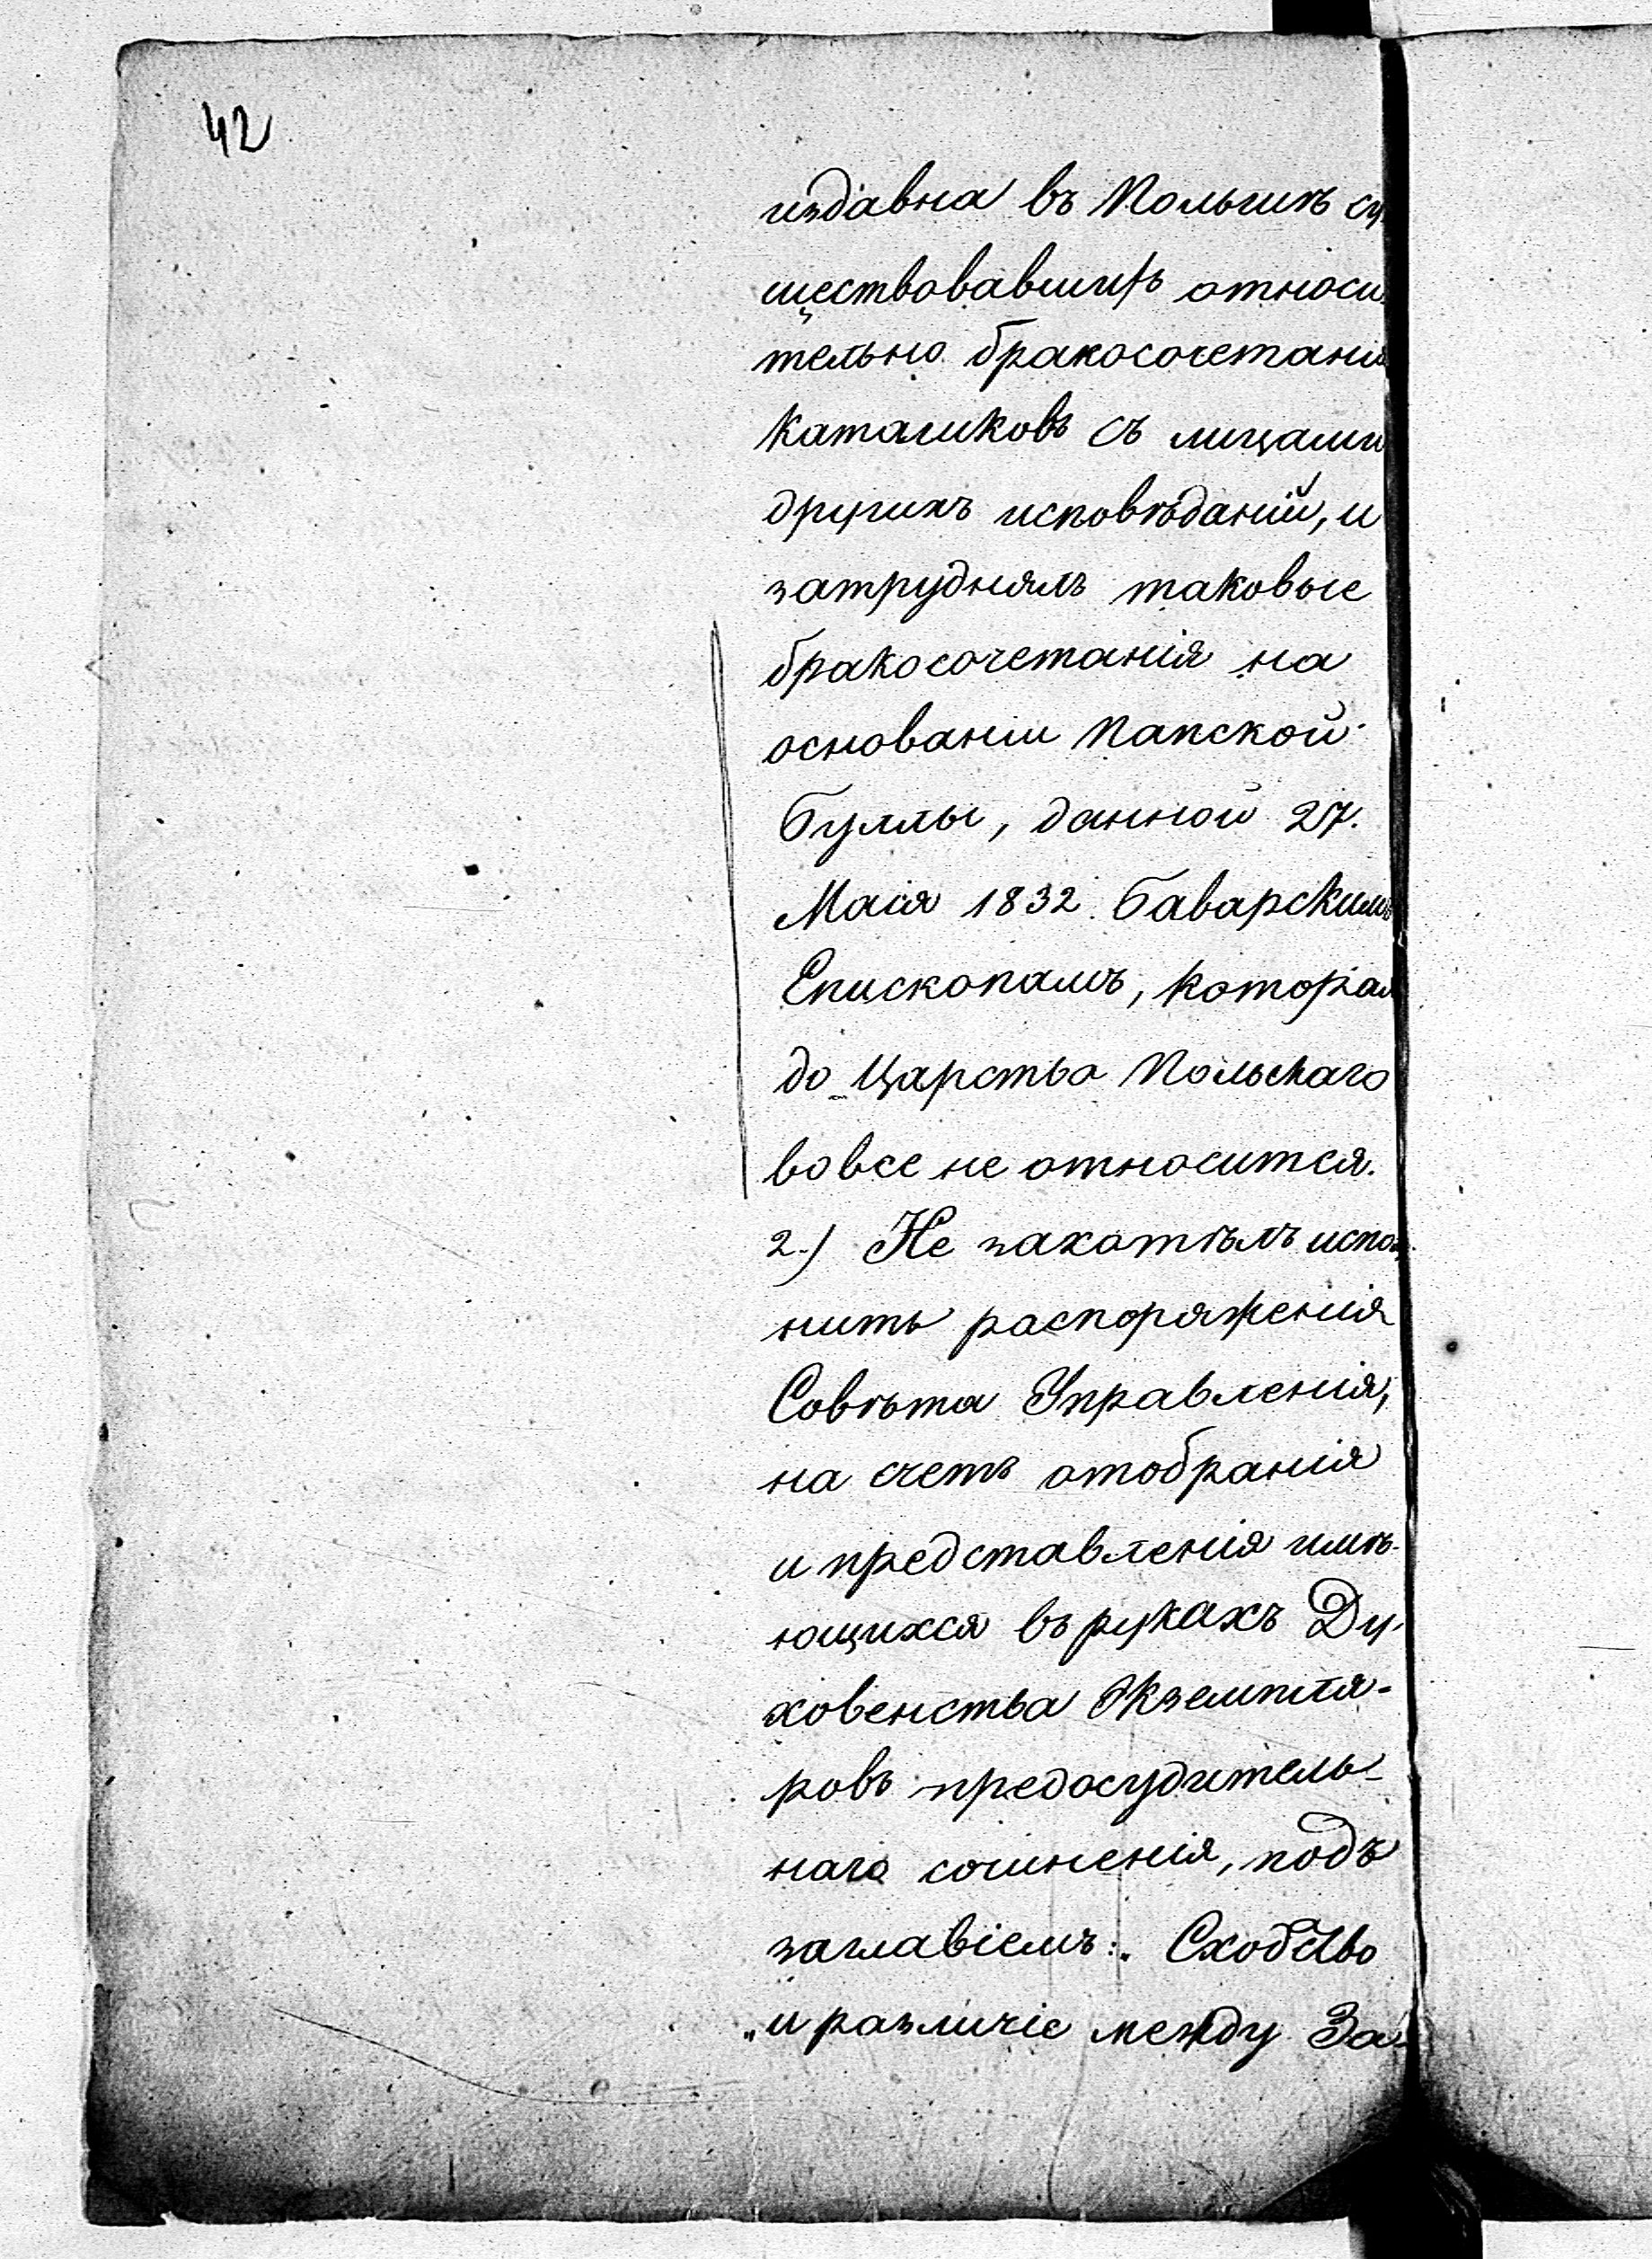 42
издавна въ Польшѣ су
ществовавшихъ относи
тельно бракосочетанія
Католиковъ съ лицами
другихъ исповѣданій, и
затруднялъ таковые
бракосочетанія на
основаніи Папской
Буллы, данной 27.
Маія 1832. Баварскимъ
Епископамъ, которая
до Царства Польскаго
вовсе не относится.
2.) Не захотѣлъ испол
нить распоряженія
Совѣта Управленія,
на счетъ отобранія
и представленія имѣ-
ющихся въ рукахъ Ду-
ховенства Экземпля-
ровъ предосудитель-
наго сочиненія, подъ
заглавіемъ: „Сходство
„и различіе между За-